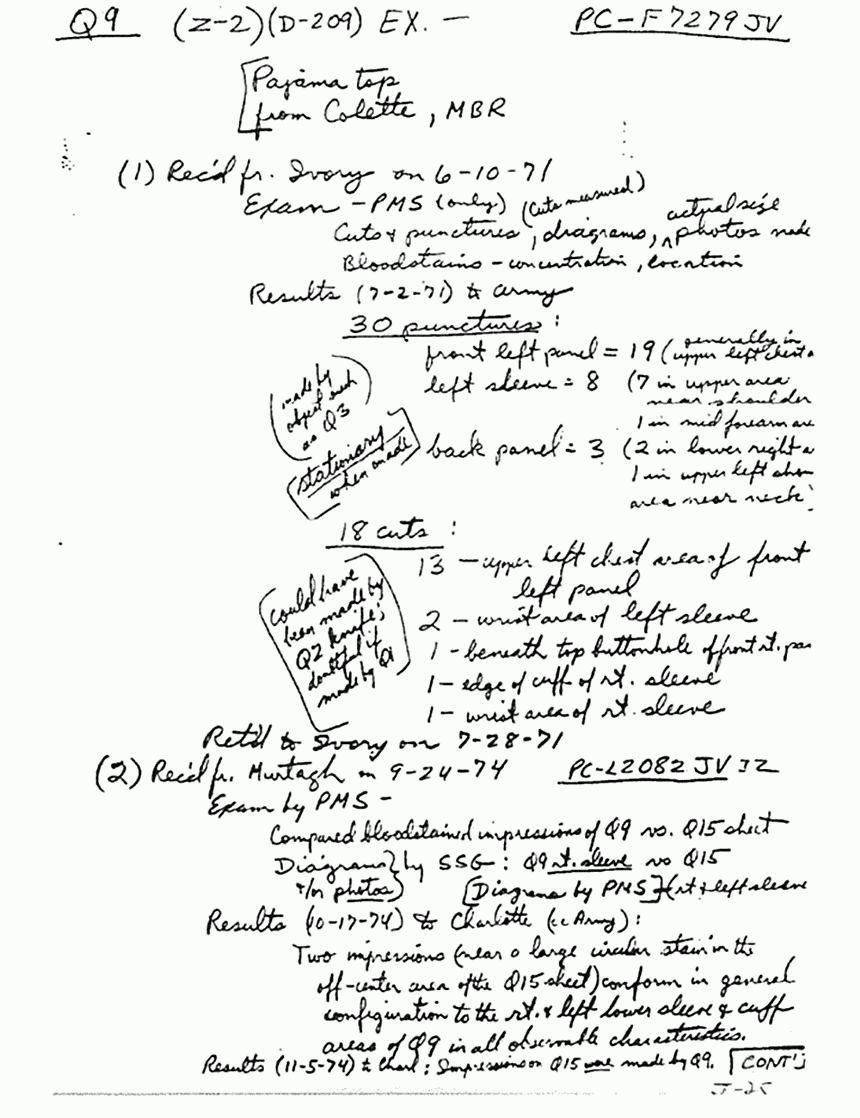 Q9 (Z-2)(D-209) EX. — PC-F7279JV
Pajama top
from Colette, MBR
(1) Rec'd fr. Ivory on 6-10-71
Exam — PMS (only) (Cuts measured)
actual size
Cuts & punctures, diagrams, ^ photos made
Bloodstains — concentration, location
Results (7-2-71) to Army
30 punctures:
front left panel = 19 (generally in
upper left chest a
left sleeve = 8 (7 in upper area
near shoulder
1 in mid forearm are
back panel = 3 (2 in lower right a
1 in upper left
area near neck
made by
object such
as Q3
stationary
when made
18 cuts:
13 — upper left chest area of front
left panel
2 — wrist area of left sleeve
1 - beneath top buttonhole of front rt. pa
1 — edge of cuff of rt. sleeve
1 — wrist area of rt. sleeve
could have
been made by
Q2 knife;
doubtful if
made by Q1
Ret'd to Ivory on 7-28-71
(2) Rec'd fr. Murtagh on 9-24-74 PC-L2082 JV IZ
Exam by PMS —
Compared bloodstained impressions of Q9 vs. Q15 sheet
Diagrams} by SSG: Q9 rt. sleeve vs Q15
&/or photos) [Diagrams by PMS] (rt & left sleeve
Results (10-17-74) to Charlotte (cc Army):
Two impressions (near a large circular stain in the
off-center area of the Q15 sheet) conform in general
configuration to the rt. & left lower sleeve & cuff
areas of Q9 in all observable characteristics.
Results (11-5-74) to Charl: Impressions on Q15 were made by Q9. CONT'
J-25